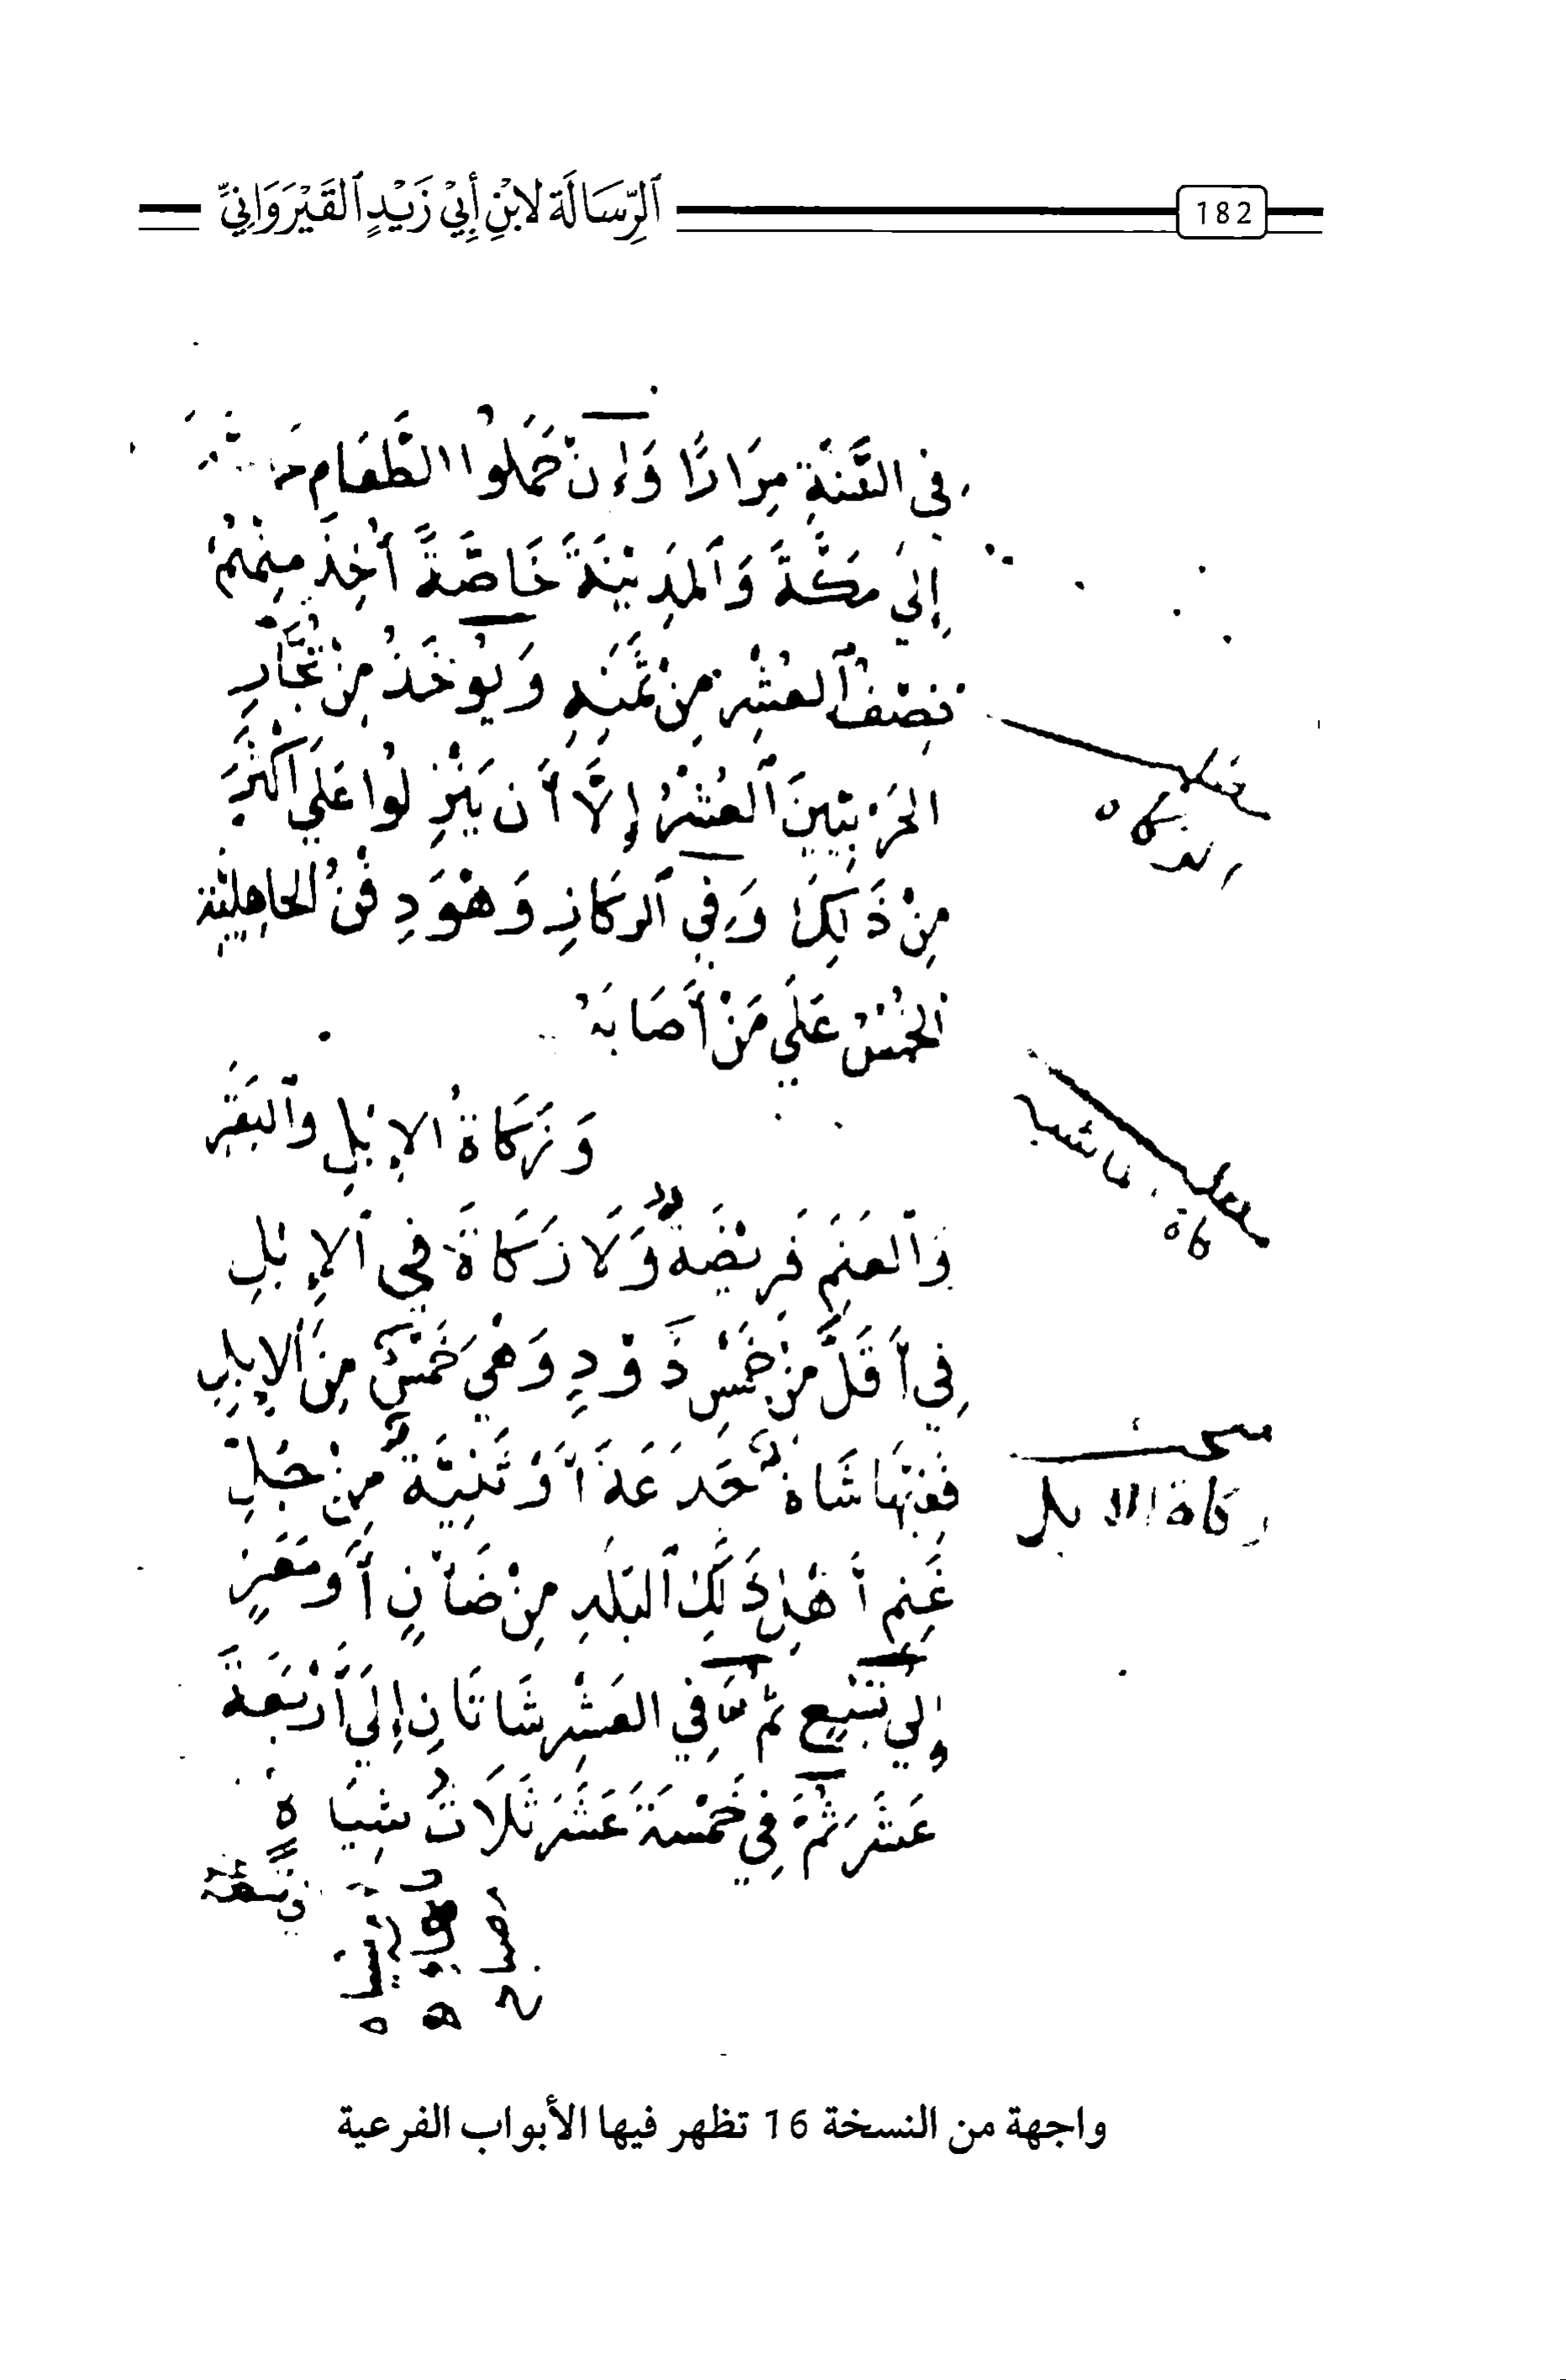 182
ٱلرِّسَالَة لابْنِ أَبِيْ زَيْدٍ ٱلقَيْرَوَانِيِّ
فِي السَّنَةِ مِرَارًا وَإِنْ حَمَلُوا الطَّعَام
إِلَي مَكَّةَ وَٱلمَدِينَةَ خَاصَّةً أُخِذَ مِنْهُمْ
نِصْفُ ٱلعُشْرِ مِنْ ثَمَنِهِ وَيُوخَذُ مِنْ تُجَّارِ
الحَرْبِيِّينَ ٱلعُشْرُ إِلَّا أَن يَنْزِلُوا عَلَي أَكْثَرَ
مِنْ ذَلِكَ وَفِي ٱلركَازِ وَهْوَ دِفْنُ الجاهِلِيَّة
الخُمْسُ عَلَي مَنْ أَصَابَهُ
وَزَكَاةُ الإِبْلِ وٱلبَقَرِ
وَٱلغَنَمِ فَرِيْضَةٌ وَلَا زَكَاةَ فِي ٱلإِبْلِ
فِي أَقَلَّ مِنْ خَمْسِ ذَوْدٍ وَهْيَ خَمْسٌ مِنَ ٱلإِبِلِ
فَفِيْهَا شَاةٌ جَذَعَةٌ أَوْ ثَنِيَّةٌ مِنْ جُلِّ
غَنِمِ أَهْلِ ذَلِكَ ٱلبَلَدِ مِنْ ضَأْنٍ أَو مَعَزٍ
إِلَي تِسْعٍ ثُمَّ فِي العَشْرِ شَاتَانِ إِلَي أَرْبَعَةَ
عَشَرَ ثُمَّ فِي خَمْسَةَ عَشَرَ ثَلَاثُ شِيَاهٍ
الزكاه
زكاة الابل
واجهة من النسخة 16 تظهر فيها الأبواب الفرعية